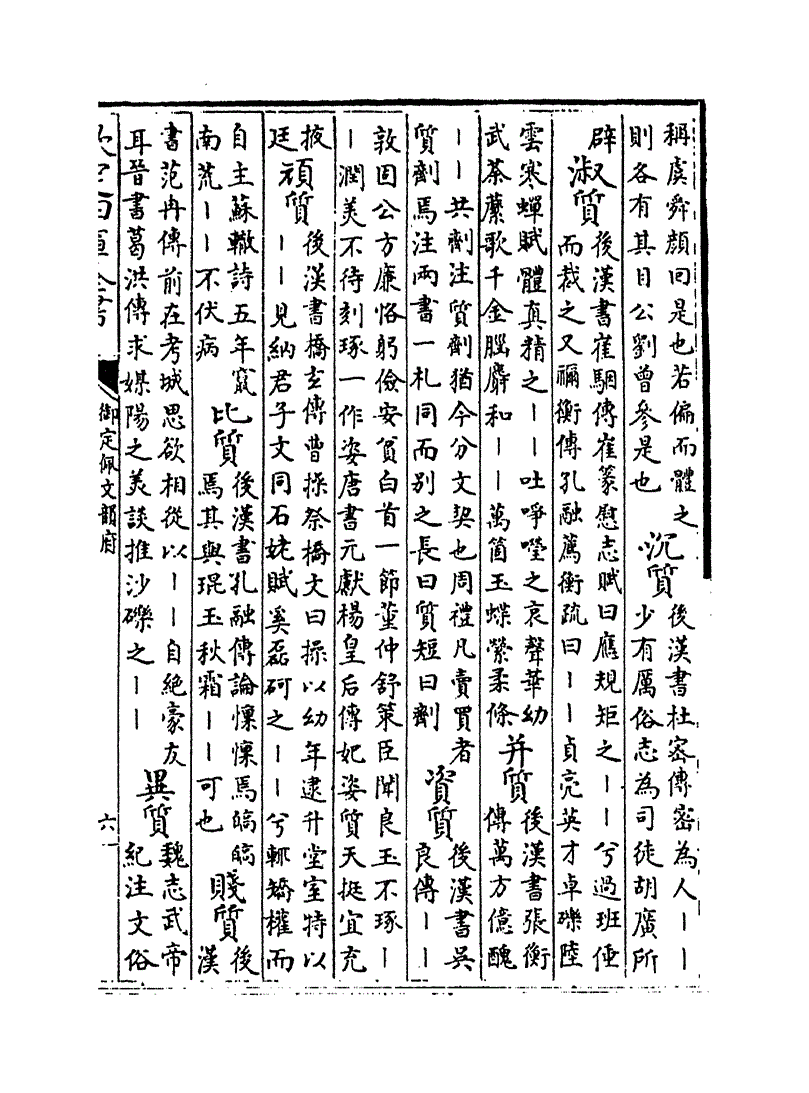 稱虞舜顏回是也若偏而體之
則各有其目公劉曾參是也
沉質
後漢書杜密傳密為人——
少有厲俗志為司徒胡廣所
辟
淑質
後漢書崔駰傳崔篆慰志賦曰應規矩之——兮過班倕
而裁之又禰衡傳孔融薦衡疏曰——貞亮英才卓礫陸
雲寒蟬賦體真精之——吐哼嘡之哀聲華幼
武荼蘼歌千金腦麝和——萬箇玉蝶縈柔條
并質
後漢書張衡
傳萬方億醜
——共劑注質劑猶今分文契也周禮凡賣買者
質劑焉注兩書一札同而別之長曰質短曰劑
資質
後漢書吳
良傳——
敦固公方廉恪躬儉安貧白首一節董仲舒策臣聞良玉不琢—
—潤美不待刻琢一作姿唐書元獻楊皇后傳妃姿質天挺宜充
掖
廷
頑質
後漢書橋玄傳曹操祭橋文曰操以幼年逮升堂室特以
——見納君子文同石姥賦奚磊砢之——兮軱矯權而
自主蘇轍詩五年竄
南荒——不伏病
比質
後漢書孔融傳論懍懍焉皜皜
焉其與琨玉秋霜——可也
賤質
後
漢
書范冉傳前在考城思欲相從以——自絕豪友
耳晉書葛洪傳求媒陽之美談推沙礫之——
異質
魏志武帝
紀注文俗
欽定四庫全書
御定佩文韻府
六